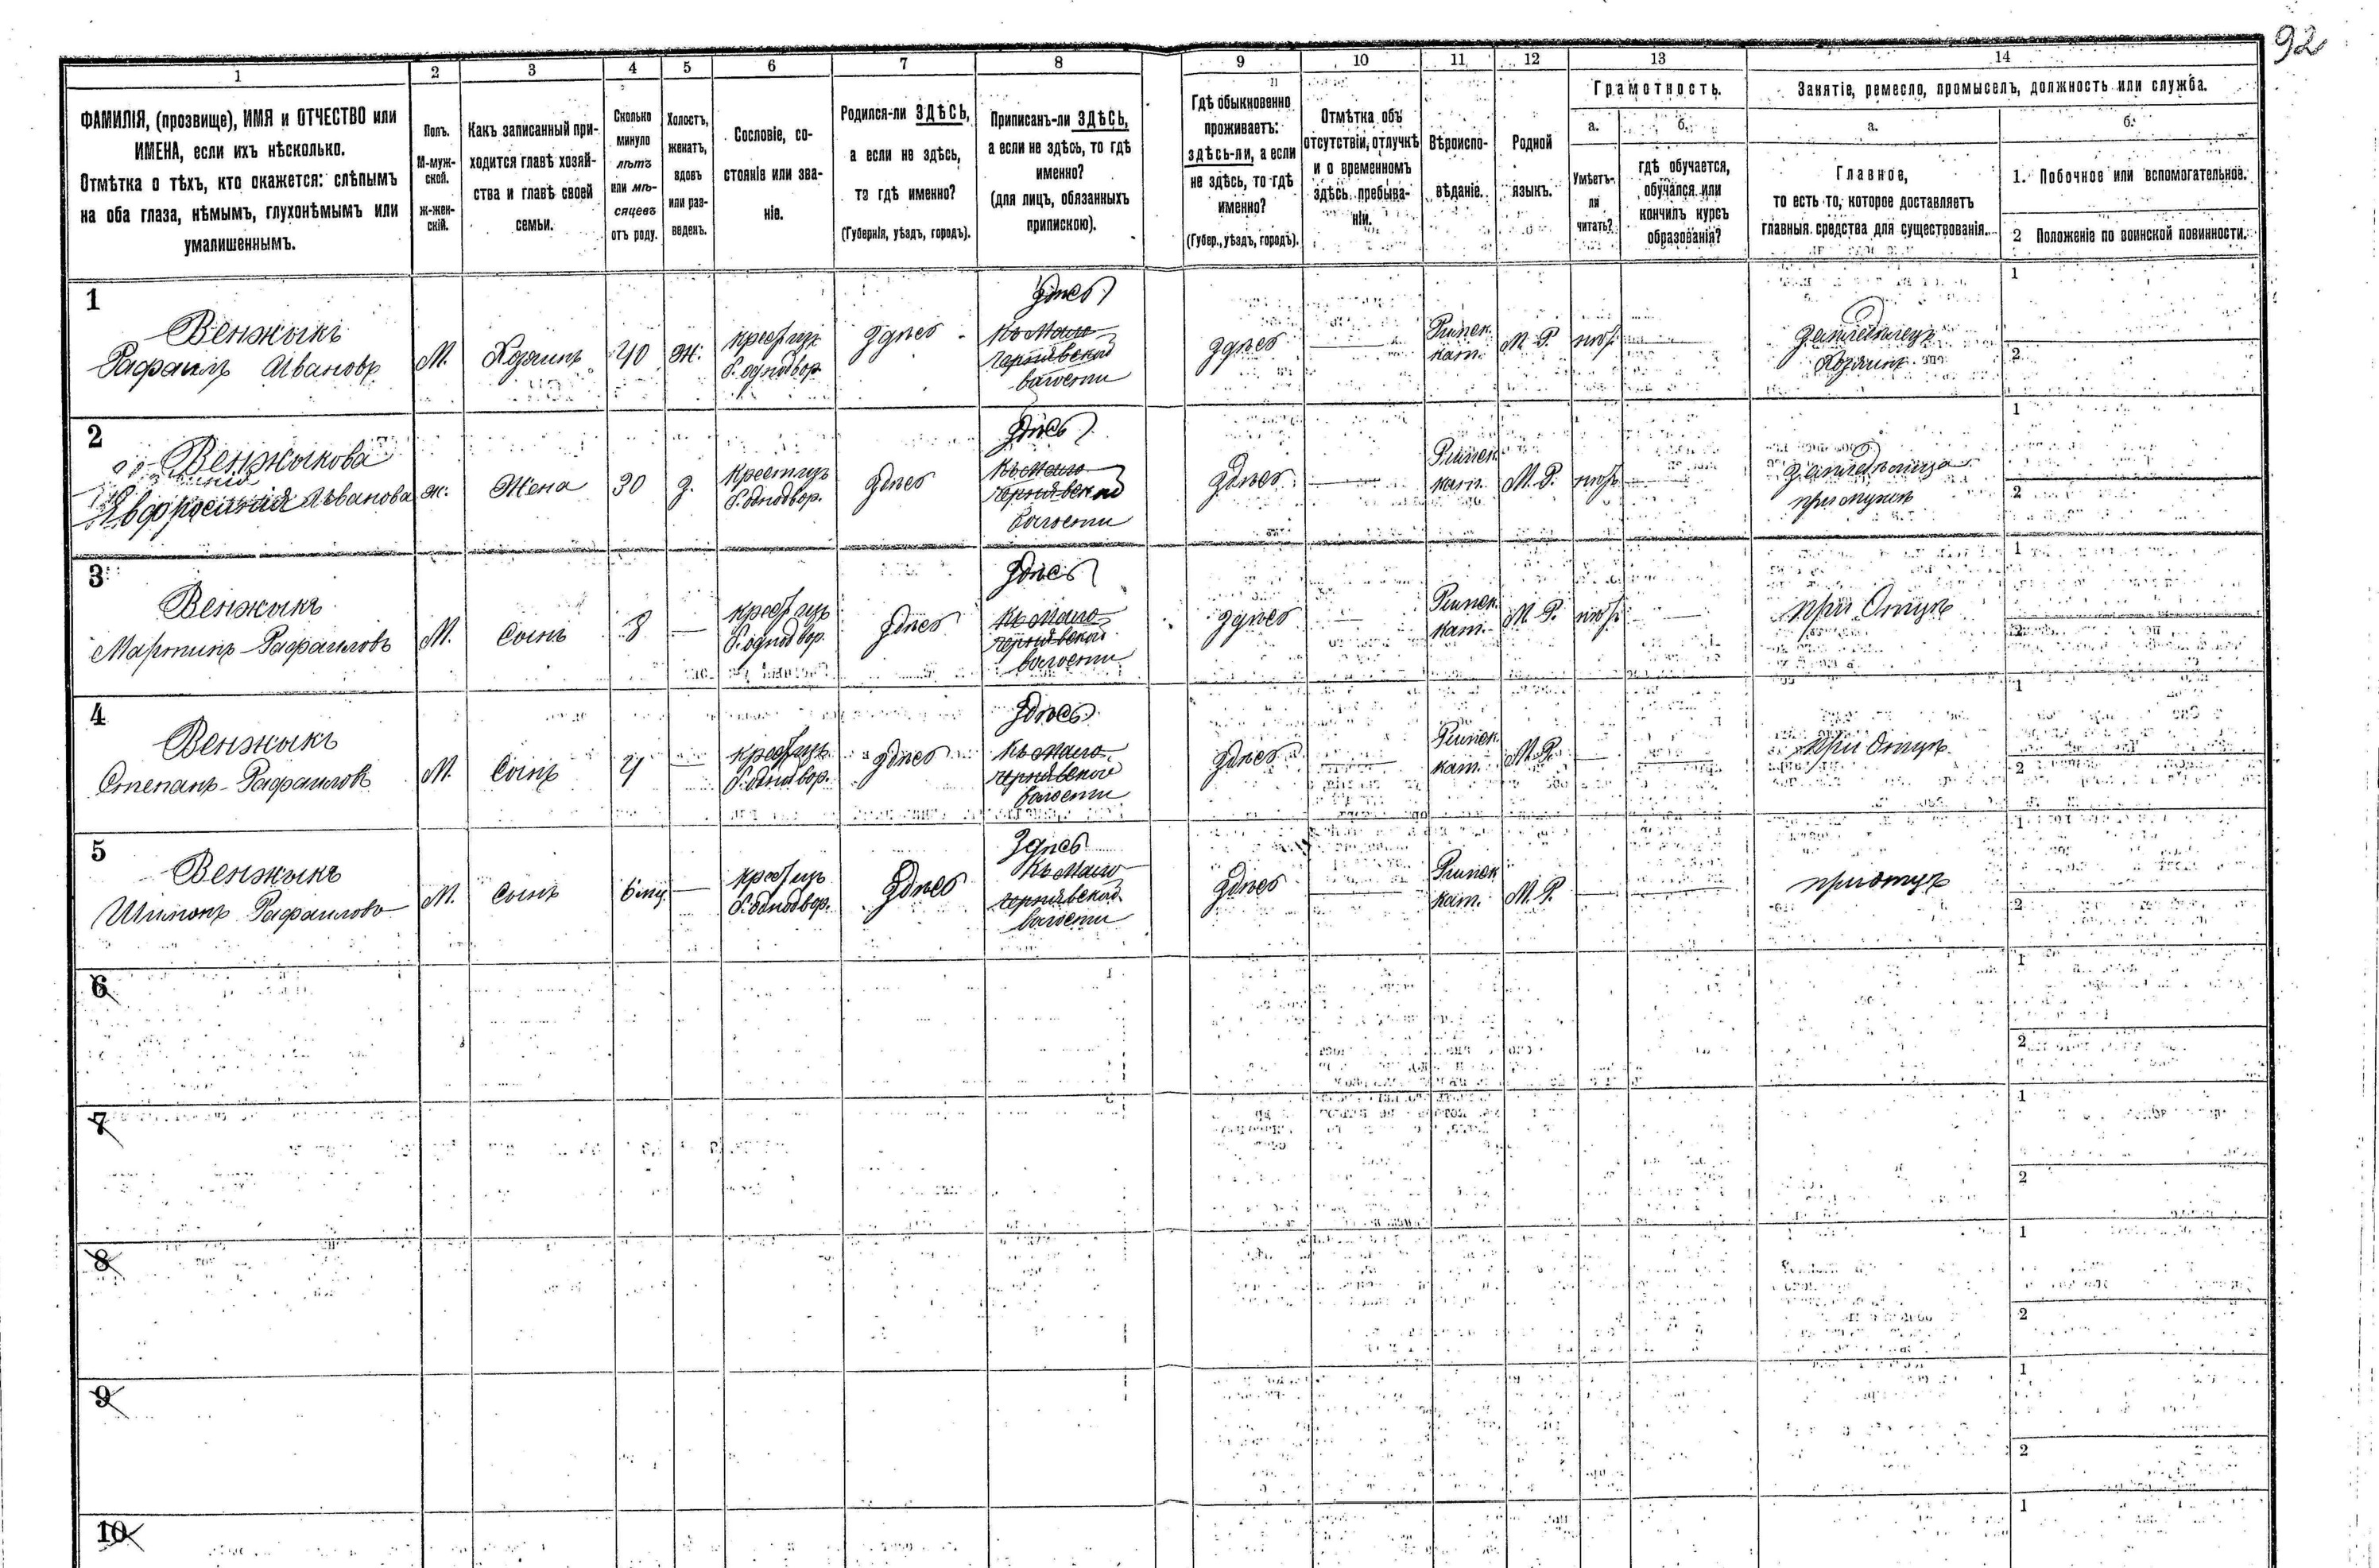 92
1 2 3 4 5 6 7 8 9 10 11 12 13 14
ФАМИЛІЯ, (прозвище), ИМЯ и ОТЧЕСТВО или
ИМЕНА, если ихъ нѣсколько.
Отмѣтка о тѣхъ, кто окажется: слѣпымъ
на оба глаза, нѣмымъ, глухонѣмымъ или
умалишеннымъ.
Полъ.
М-муж-
ской.
ж-жен-
скій.
Какъ записанный при-
ходится главѣ хозяй-
ства и главѣ своей
семьи.
Сколько
минуло
лѣтъ
или мѣ-
сяцевъ
отъ роду.
Холостъ,
женатъ,
вдовъ
или раз-
веденъ.
Сословіе, со-
стояніе или зва-
ніе.
Родился-ли ЗДѢСЬ,
а если не здѣсь,
то гдѣ именно?
(Губернія, уѣздъ, городъ).
Приписанъ-ли ЗДѢСЬ,
а если не здѣсь, то гдѣ
именно?
(для лицъ, обязанныхъ
припискою).
Гдѣ обыкновенно
проживаетъ:
здѣсь-ли, а если
не здѣсь, то гдѣ
именно?
(Губер., уѣздъ, городъ).
Отмѣтка объ
отсутствіи, отлучкѣ
и о временномъ
здѣсь пребыва-
ніи.
Вѣроиспо-
вѣданіе.
Родной
языкъ.
Грамотность.
а.
Умѣетъ-
ли
читать?
б.
гдѣ обучается,
обучался или
кончилъ курсъ
образованія?
Занятіе, ремесло, промыселъ, должность или служба.
а.
Главное,
то есть то, которое доставляетъ
главныя средства для существованія.
б.
1. Побочное или вспомогательное.
2 Положеніе по воинской повинности.
1
Венжыкъ
Рафаилъ Ивановъ
М.
Хозяинъ
40
ж.
б. однодвор.
здѣсь
здѣсь
Къ Мало
Чернявской
волости
здѣсь
Римск.
кат.
М. Р.
Хозяинъ
1
2
2
Венжыкова
Иванова
ж.
Жена
30
з.
б. однодвор.
здѣсь
здѣсь
Къ Мало
Чернявской
волости
здѣсь
Римск.
кат.
М. Р.
при мужѣ
1
2
3
Венжыкъ
Мартинъ Рафаиловъ
М.
Сынъ
8
—
б. однодвор.
здѣсь
здѣсь
Къ Мало
Чернявской
волости
здѣсь
Римск.
кат.
М. Р.
при Отцѣ
1
2
4
Венжыкъ
Степанъ Рафаиловъ
М.
Сынъ
4
—
б. однодвор.
здѣсь
здѣсь
Къ Мало
Чернявской
волости
здѣсь
Римск.
кат.
М. Р.
—
при Отцѣ
1
2
5
Венжыкъ
Шимонъ Рафаиловъ
М.
Сынъ
6 мц.
—
б. однодвор.
здѣсь
здѣсь
Къ Мало
Чернявской
волости
здѣсь
Римск.
кат.
М. Р.
—
при отцѣ
1
2
6
1
2
7
1
2
8
1
2
9
1
2
10
1